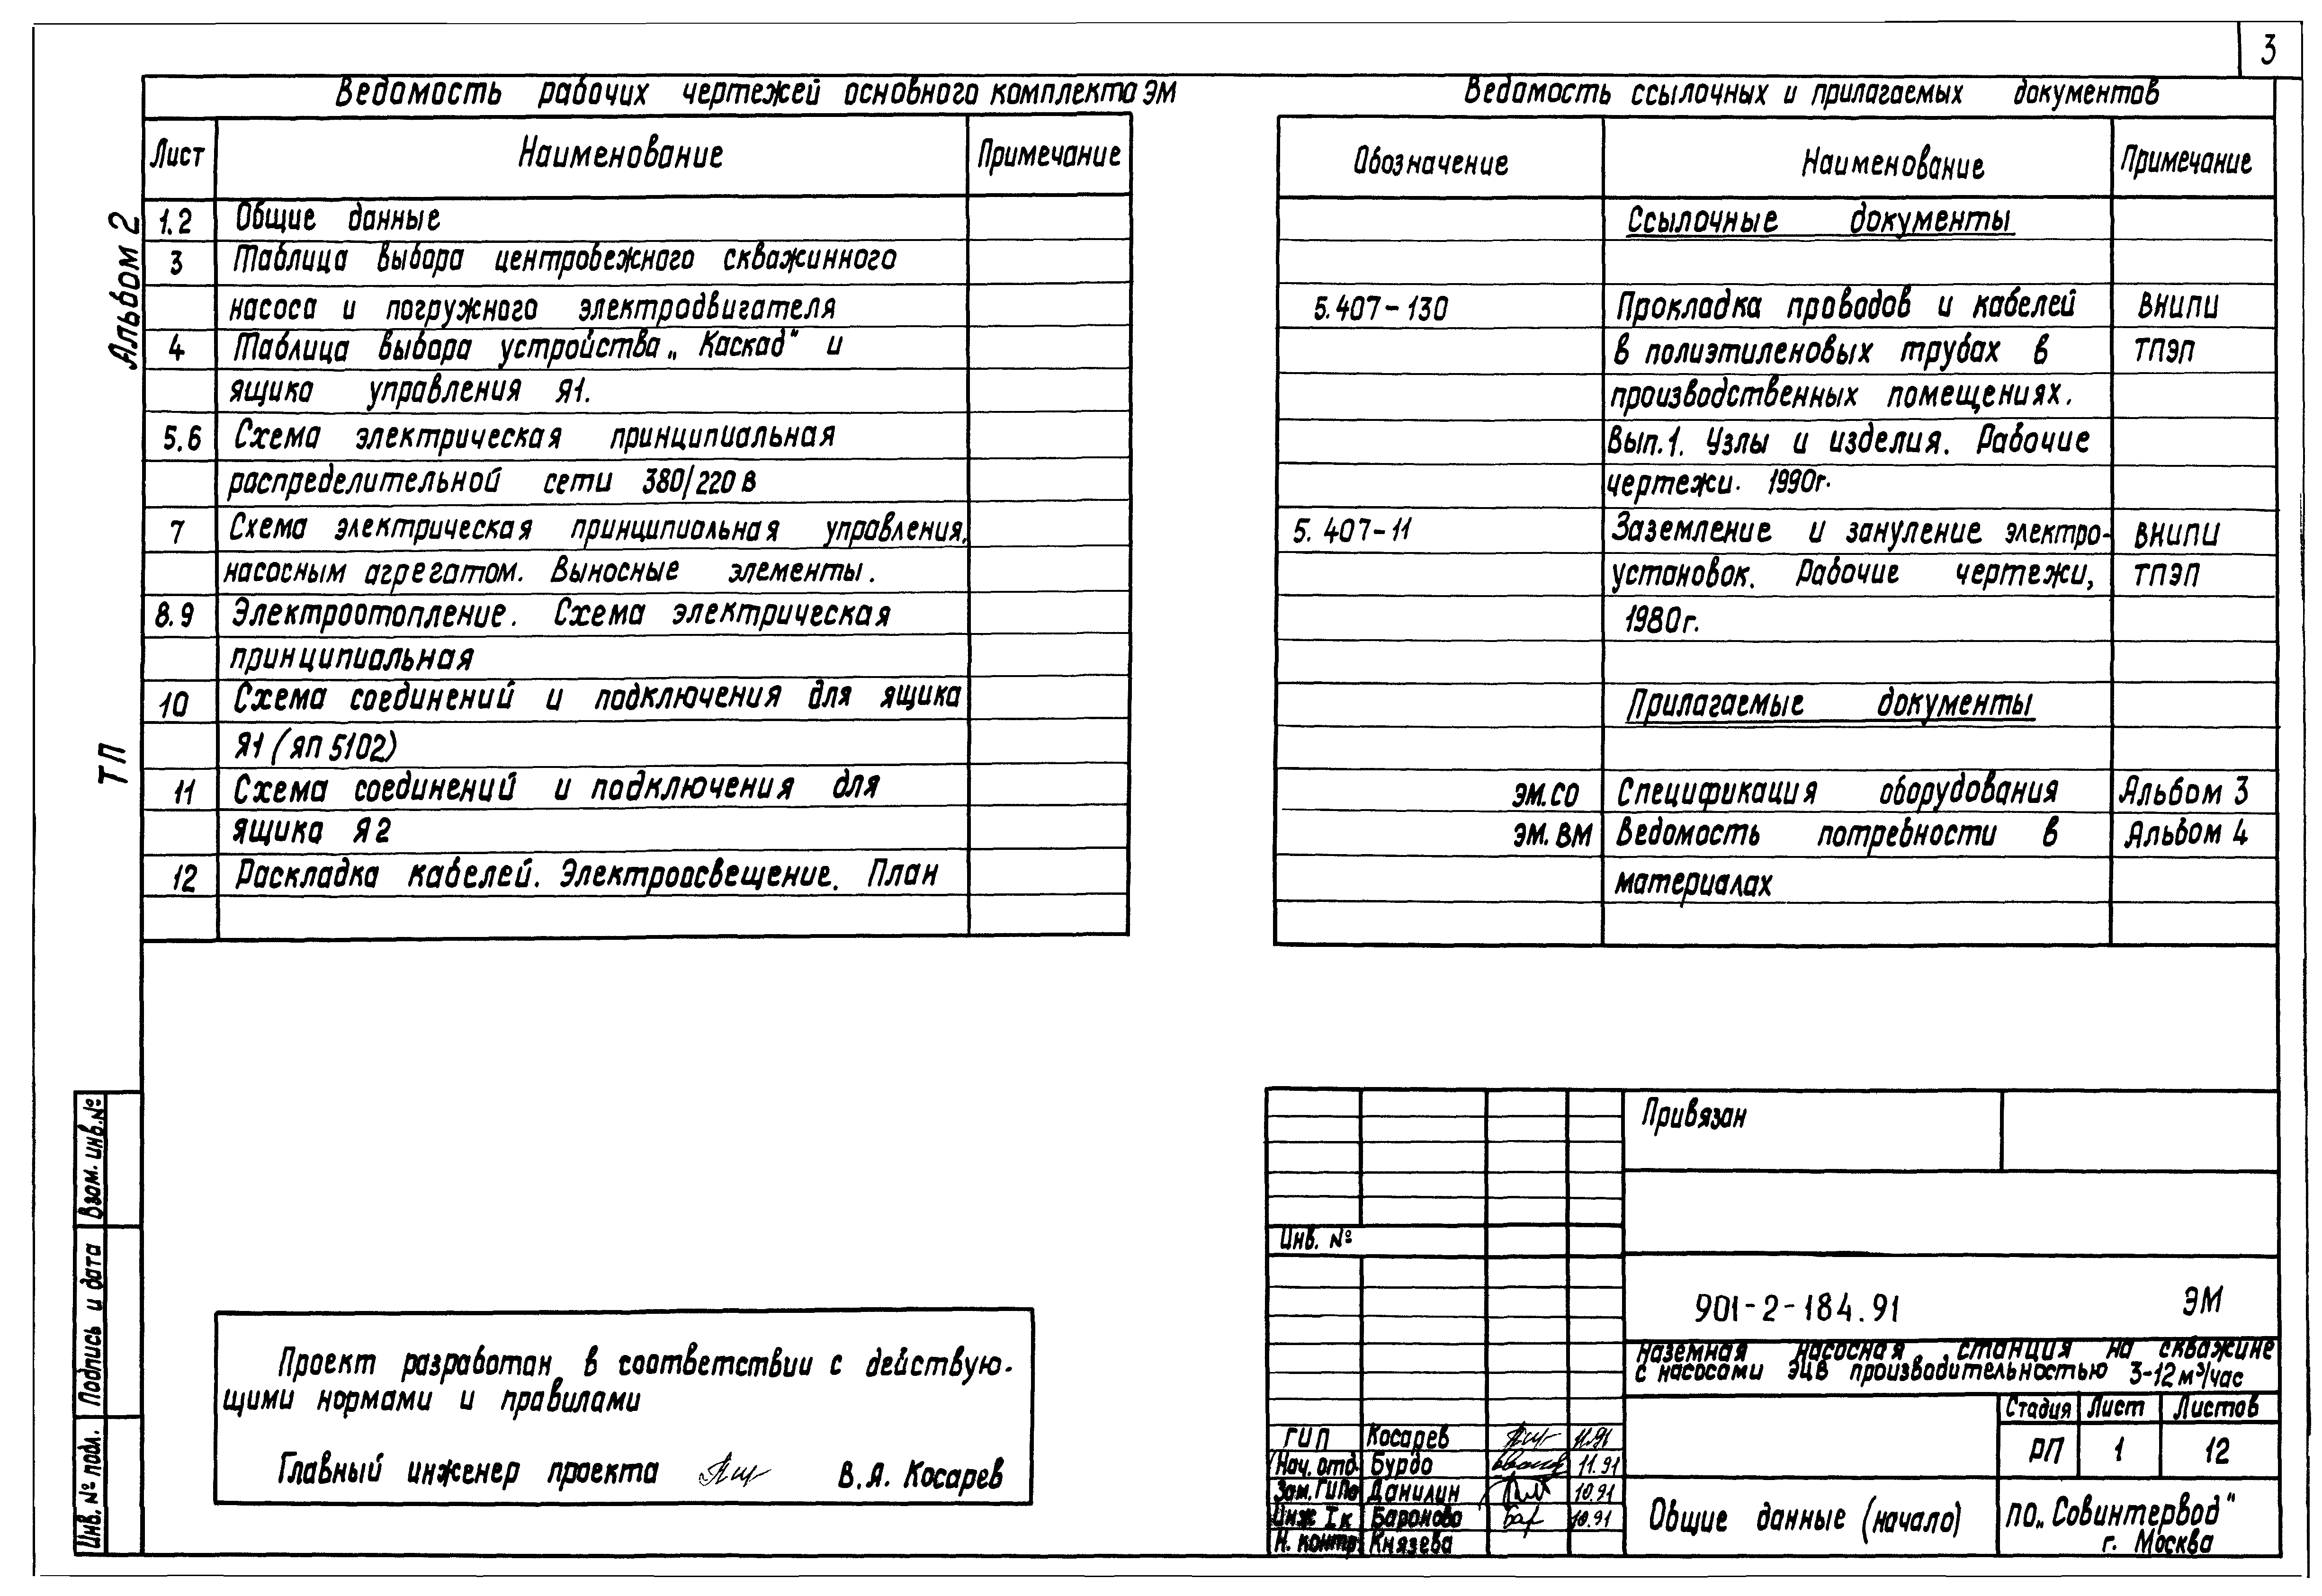 3
Ведомость рабочих чертежей основного комплекта ЭМ
Лист Наименование Примечание
1.2 Общие данные
3 Таблица выбора центробежного скважинного
насоса и погружного электродвигателя
4 Таблица выбора устройства „Каскад" и
ящика управления Я1.
5.6 Схема электрическая принципиальная
распределительной сети 380/220 в
7 Схема электрическая принципиальная управления.
насосным агрегатом. Выносные элементы.
8.9 Электроотопление. Схема электрическая
принципиальная
10 Схема соединений и подключения для ящика
Я1 (ЯП 5102)
11 Схема соединений и подключения для
ящика Я2
12 Раскладка кабелей. Электроосвещение. План
Ведомость ссылочных и прилагаемых документов
Обозначение Наименование Примечание
Ссылочные документы
5.407-130 Прокладка проводов и кабелей ВНИПИ
в полиэтиленовых трубах в ТПЭП
производственных помещениях.
Вып.1. Узлы и изделия. Рабочие
чертежи. 1990г.
5.407-11 Заземление и зануление электро- ВНИПИ
установок. Рабочие чертежи, ТПЭП
1980г.
Прилагаемые документы
ЭМ.СО Спецификация оборудования Альбом 3
ЭМ.ВМ Ведомость потребности в Альбом 4
материалах
Альбом 2
ТП
Взам. инв. №
Подпись и дата
Инв. № подл.
Проект разработан в соответствии с действую-
щими нормами и правилами
Главный инженер проекта В.Я. Косарев
Привязан
Инв. №
901-2-184.91 ЭМ
Наземная насосная станция на скважине
с насосами ЭЦВ производительностью 3-12 м³/час
Стадия Лист Листов
РП 1 12
ГИП Косарев 11.91
Нач. отд. Бурдо 11.91
Зам. ГИПа Данилин 10.91
Инж I к Баронова 10.91
Н. контр. Князева
Общие данные (начало)
ПО „Совинтервод"
г. Москва